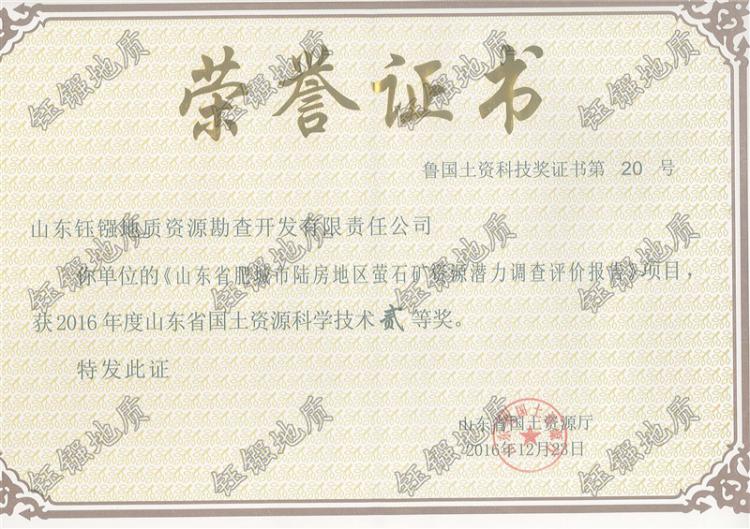 荣誉证书
鲁国土资科技奖证书第 20 号
山东钰镪地质资源勘查开发有限责任公司
你单位的《山东省肥城市陆房地区萤石矿资源潜力调查评价报告》项目，
获2016年度山东省国土资源科学技术贰等奖。
特发此证
山东省国土资源厅
2016年12月23日
钰镪地质
钰镪地质
钰镪地质
钰镪地质
钰镪地质
钰镪地质
钰镪地质
钰镪地质
钰镪地质
钰镪地质
钰镪地质
钰镪地质